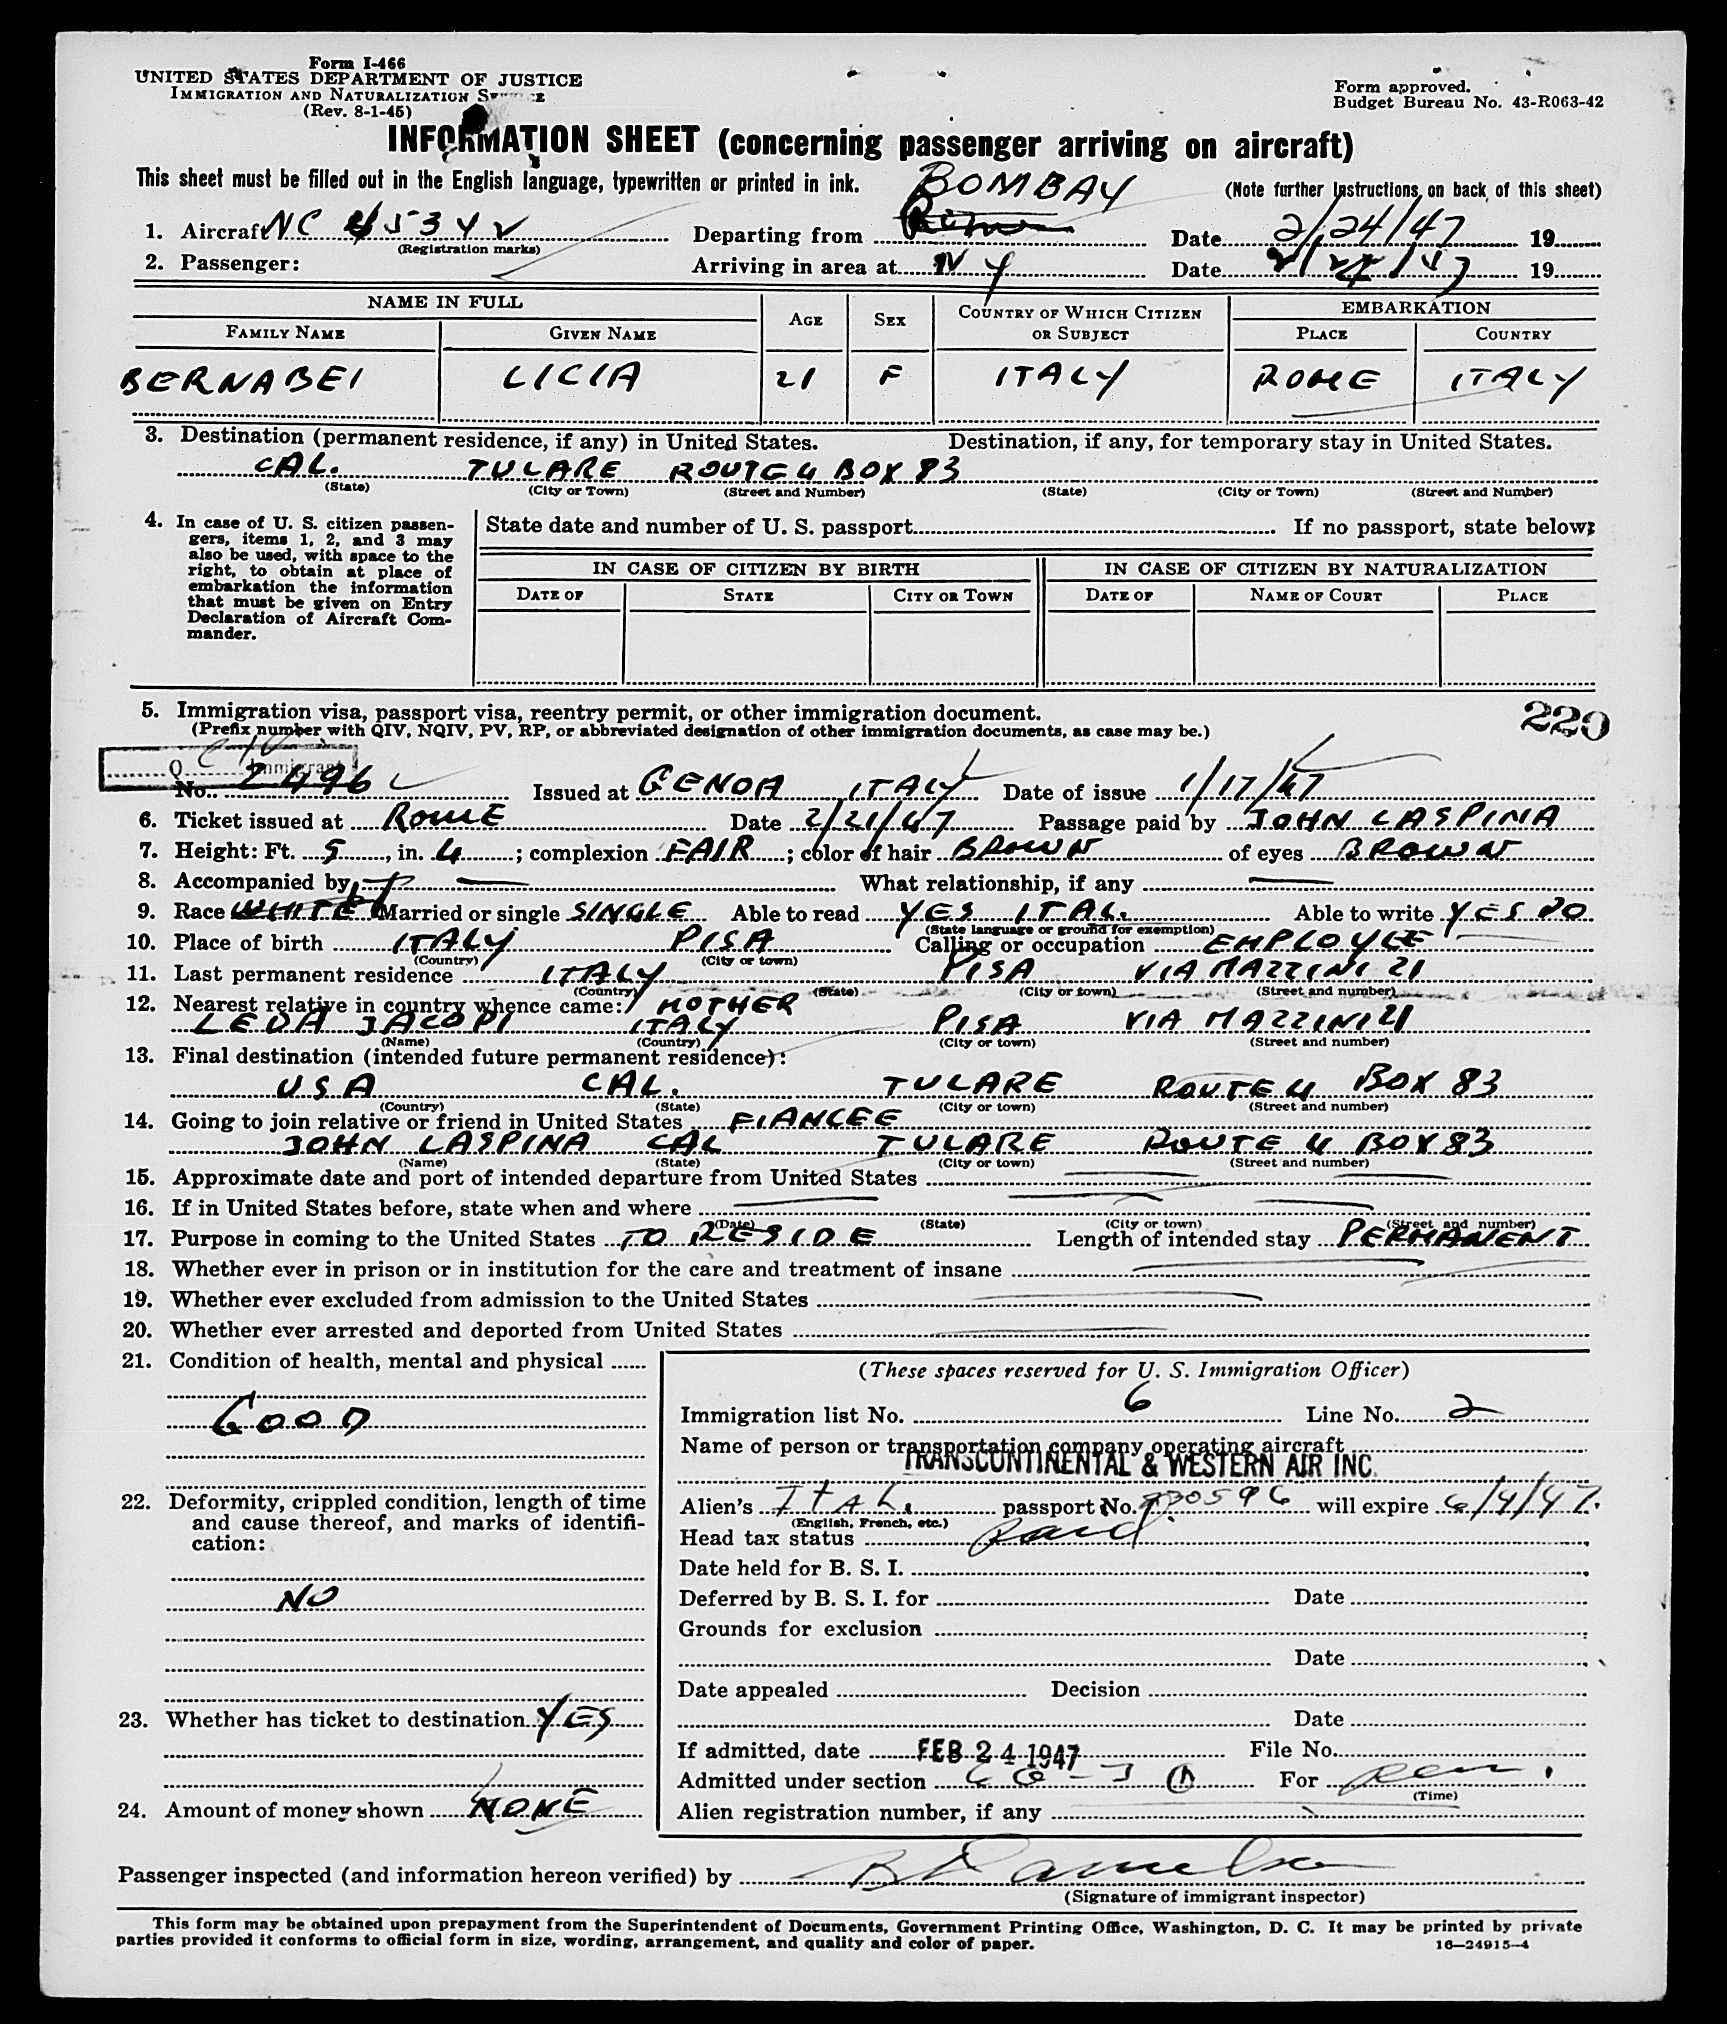 Form I-466
UNITED STATES DEPARTMENT OF JUSTICE
IMMIGRATION AND NATURALIZATION
(Rev. 8-1-45)
Form approved.
Budget Bureau No. 43-R063-42
INFORMATION SHEET (concerning passenger arriving on aircraft)
This sheet must be filled out in the English language, typewritten or printed in ink.
(Note further instructions on back of this sheet)
BOMBAY
1. Aircraft NC 45342 Departing from Rome Date 2/24/47 19
(Registration marks)
2. Passenger: Arriving in area at NY Date 2/24/47 19
NAME IN FULL AGE SEX COUNTRY OF WHICH CITIZEN OR SUBJECT EMBARKATION
FAMILY NAME GIVEN NAME PLACE COUNTRY
BERNABEI LICIA 21 F ITALY ROME ITALY
3. Destination (permanent residence, if any) in United States. Destination, if any, for temporary stay in United States.
CAL. TULARE ROUTE 4 BOX 83
(State) (City or Town) (Street and Number) (State) (City or Town) (Street and Number)
4. In case of U. S. citizen passen-
gers, items 1, 2, and 3 may
also be used, with space to the
right, to obtain at place of
embarkation the information
that must be given on Entry
Declaration of Aircraft Com-
mander.
State date and number of U. S. passport If no passport, state below:
IN CASE OF CITIZEN BY BIRTH IN CASE OF CITIZEN BY NATURALIZATION
DATE OF STATE CITY OR TOWN DATE OF NAME OF COURT PLACE
5. Immigration visa, passport visa, reentry permit, or other immigration document.
(Prefix number with QIV, NQIV, PV, RP, or abbreviated designation of other immigration documents, as case may be.)
220
Q Immigrant
No. 2496 Issued at GENOA ITALY Date of issue 1/17/47
6. Ticket issued at ROME Date 2/21/47 Passage paid by JOHN LASPINA
7. Height: Ft. 5, in. 4; complexion FAIR; color of hair BROWN of eyes BROWN
8. Accompanied by — What relationship, if any —
9. Race WHITE Married or single SINGLE Able to read YES ITAL. Able to write YES
(State language or ground for exemption)
10. Place of birth ITALY PISA Calling or occupation EMPLOYEE
(Country) (City or town)
11. Last permanent residence ITALY PISA VIA MAZZINI 21
(Country) (State) (City or town) (Street and number)
12. Nearest relative in country whence came: MOTHER
LEDA JACOPI ITALY PISA VIA MAZZINI 21
(Name) (Country) (City or town) (Street and number)
13. Final destination (intended future permanent residence):
USA CAL. TULARE ROUTE 4 BOX 83
(Country) (State) (City or town) (Street and number)
14. Going to join relative or friend in United States FIANCEE
JOHN LASPINA CAL TULARE ROUTE 4 BOX 83
(Name) (State) (City or town) (Street and number)
15. Approximate date and port of intended departure from United States
16. If in United States before, state when and where
(Date) (State) (City or town) (Street and number)
17. Purpose in coming to the United States TO RESIDE Length of intended stay PERMANENT
18. Whether ever in prison or in institution for the care and treatment of insane
19. Whether ever excluded from admission to the United States
20. Whether ever arrested and deported from United States
21. Condition of health, mental and physical
GOOD
22. Deformity, crippled condition, length of time
and cause thereof, and marks of identifi-
cation:
NO
23. Whether has ticket to destination YES
24. Amount of money shown NONE
(These spaces reserved for U. S. Immigration Officer)
Immigration list No. 6 Line No. 2
Name of person or transportation company operating aircraft
TRANSCONTINENTAL & WESTERN AIR INC.
Alien's Ital. passport No. 930596 will expire 6/4/47.
(English, French, etc.)
Head tax status Paid
Date held for B. S. I.
Deferred by B. S. I. for Date
Grounds for exclusion
Date
Date appealed Decision
Date
If admitted, date FEB 24 1947 File No.
Admitted under section For
(Time)
Alien registration number, if any
Passenger inspected (and information hereon verified) by
(Signature of immigrant inspector)
This form may be obtained upon prepayment from the Superintendent of Documents, Government Printing Office, Washington, D. C. It may be printed by private
parties provided it conforms to official form in size, wording, arrangement, and quality and color of paper. 16—24915-4